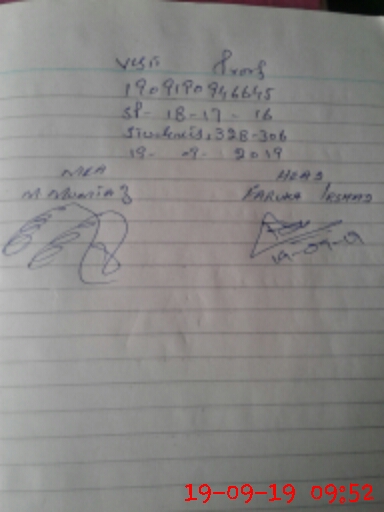 Visit Proof
190919094645
SP- 18-17-16
Students, 328-306
19- 09- 2019
MEA HEAD
M Mumtaz FARUKA IRSHAD
19-09-19
19-09-19 09:52